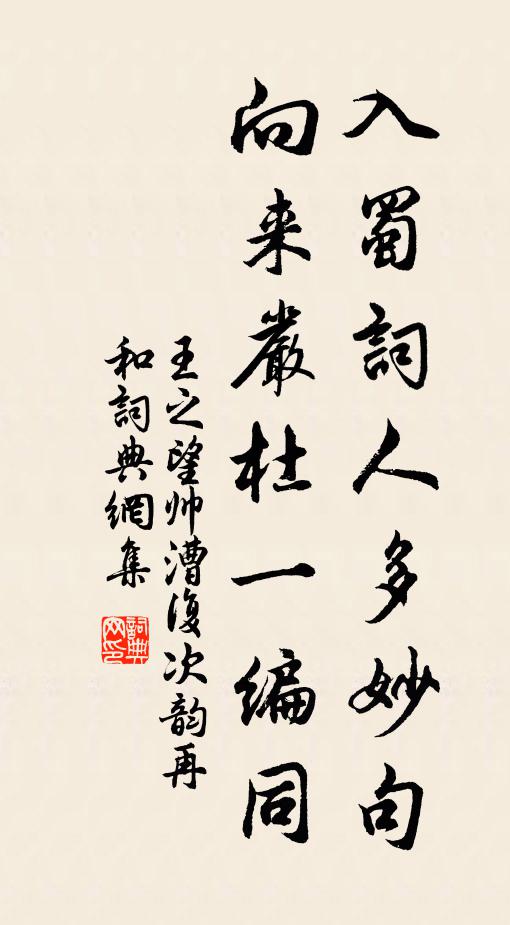 入蜀詞人多妙句
向来嚴杜一編同
王之望帅漕復次韵再
和詞典網集
詞典
网印